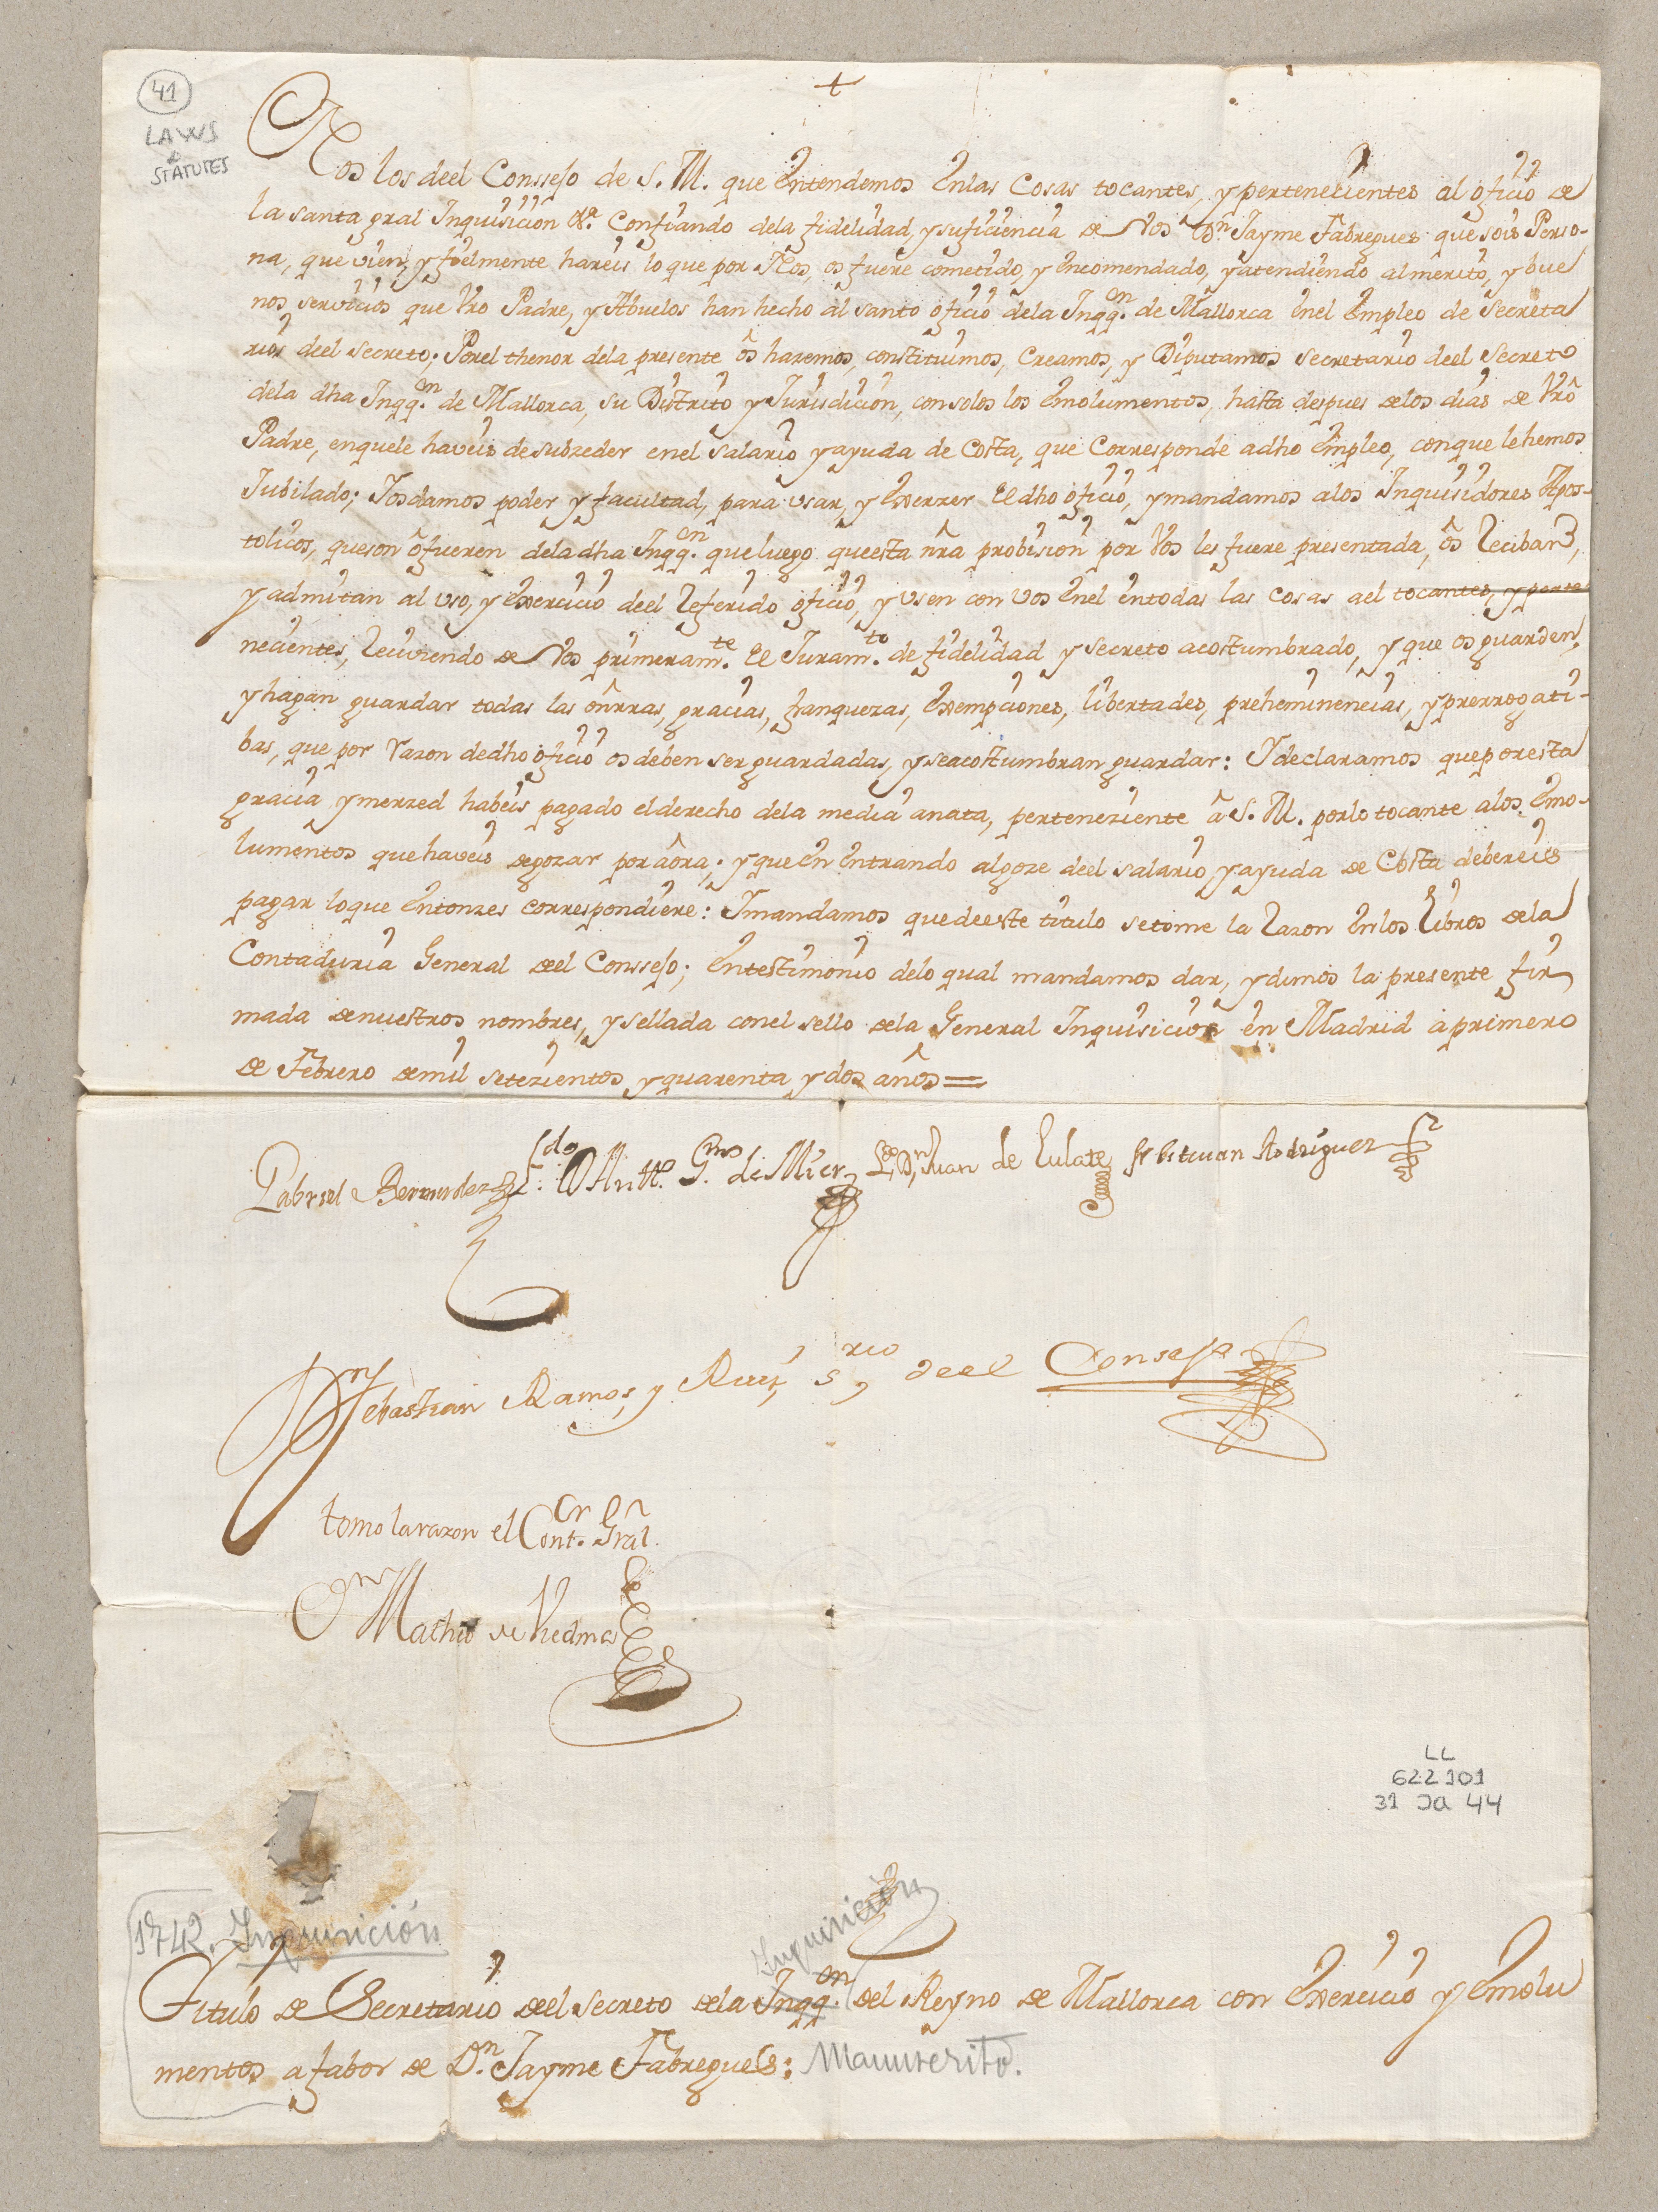 41
LAWS
&
STATUTES
+
Nos los deel Conssejo de S. M. que Entendemos Enlas Cosas tocantes, y pertenecientes al oficio de
la santa gral Inquisicion &ª. Confiando dela fidelidad, y suficiencia de Vos Dn. Jayme Fabregues que sois Perso-
na, que vien, y fielmente hareis lo que por Nos, os fuere cometido, y Encomendado, y atendiendo al merito, y bue
nos servicios que Vro Padre, y Abuelos han hecho al santo oficio dela Inqq.on de Mallorca Enel Empleo de Secreta
rios deel secreto; Porel thenor dela presente ôs hazemos, constituimos, Creamos, y Diputamos secretario deel Secreto
dela dha Inqq.on de Mallorca, su Distrito y Jurisdicion, con solos los Emolumentos, hasta despues delos dias de Vrô
Padre, enquele haveis de subzeder enel salario y ayuda de Costa, que Corresponde adho Empleo, conque le hemos
Jubilado; Josdamos poder y facultad, para usar, y Exerzer El dho oficio, y mandamos alos Inquisidores Apos-
tolicos, queson ôfueren dela dha Inqq.on que luego queesta nrâ probision por Vos les fuere presentada, ôs Reciban,
y admitan al uso, y Exercicio deel Referido oficio, y usen con vos Enel entodas las cosas ael tocantes, y perte
necientes, Reciviendo de Vos primeram.te El Juram.to de fidelidad y secreto acostumbrado, y que os guarden,
y hagan guardar todas las onrras, gracias, franquezas, Exempciones, libertades, preheminencias, y prerrogati-
bas, que por razon dedho oficio os deben ser guardadas, y seacostumbran guardar: Ydeclaramos queporesta
gracia y merzed habeis pagado elderecho dela media anata, perteneziente â S. M. porlo tocante alos Emo-
lumentos que haveis degozar por aôra; y que En Entrando algoze deel salario y ayuda de Costa debereis
pagar loque Entonzes correspondiere: Jmandamos quedeeste titulo setome la Razon Enlos Libros dela
Contaduria General deel Conssejo; Entestimonio delo qual mandamos dar, y dimos la presente fir
mada denuestros nombres, y sellada conel sello dela General Inquisicion en Madrid à primero
de Febrero demil setezientos y quarenta y dos anôs =
Gabriel Bermudez Ldo. D Antt.º G.rrez de Mier Ldo. Dn Juan de Eulate fr Estevan Rodriguez
Dn Sebastian Ramos, y Ruiz, s.rio deel Consejo
tomo la razon el Cont.or Gral.
Dn Matheo de Viedma
LL
622101
31 Ja 44
1742. Inquisición
Inquisición
Titulo de Secretario deel secreto dela Inqq.on del Reyno de Mallorca con Exercicio y Emolu
mentos a fabor de Dn. Jayme Fabregues: Manuscrito.